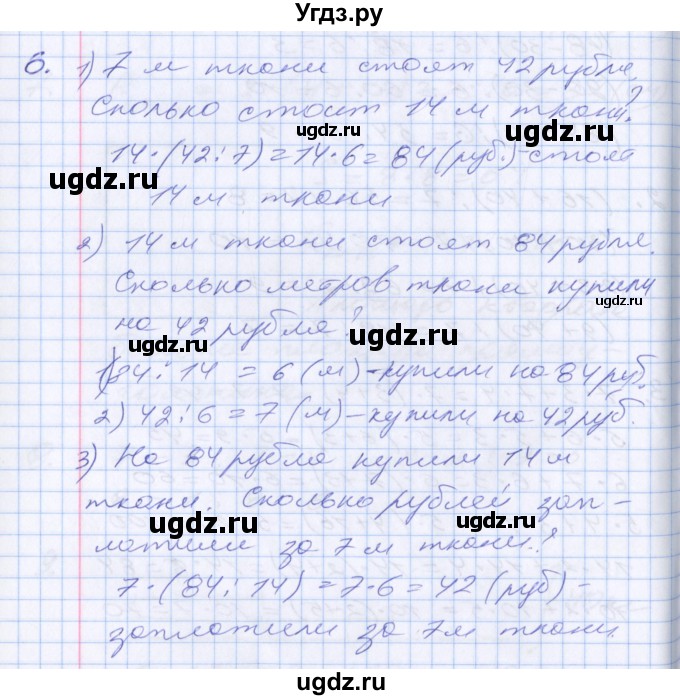 Угдз.ру
6. 1) 7 м ткани стоят 42 рубля.
Сколько стоит 14 м ткани?
ugdz.ru ugdz.ru
14·(42:7)=14·6=84(руб.)-стоят
ugdz.ru
14 м ткани
2) 14 м ткани стоят 84 рубля.
Сколько метров ткани купили
ugdz.ru
на 42 рубля?
ugdz.ru ugdz.ru
1)84:14 = 6 (м)-купили на 84 руб.
2) 42:6=7 (м)-купили на 42 руб.
3) На 84 рубля купили 14 м
ugdz.ru
ткани. Сколько рублей зап-
ugdz.ru
латили за 7 м ткани?
ugdz.ru
7·(84:14)=7·6=42 (руб)-
ugdz.ru
заплатили за 7м ткани.
ugdz.ru
ugdz.ru